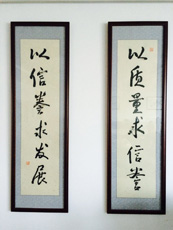 以质量求信誉
以信誉求发展